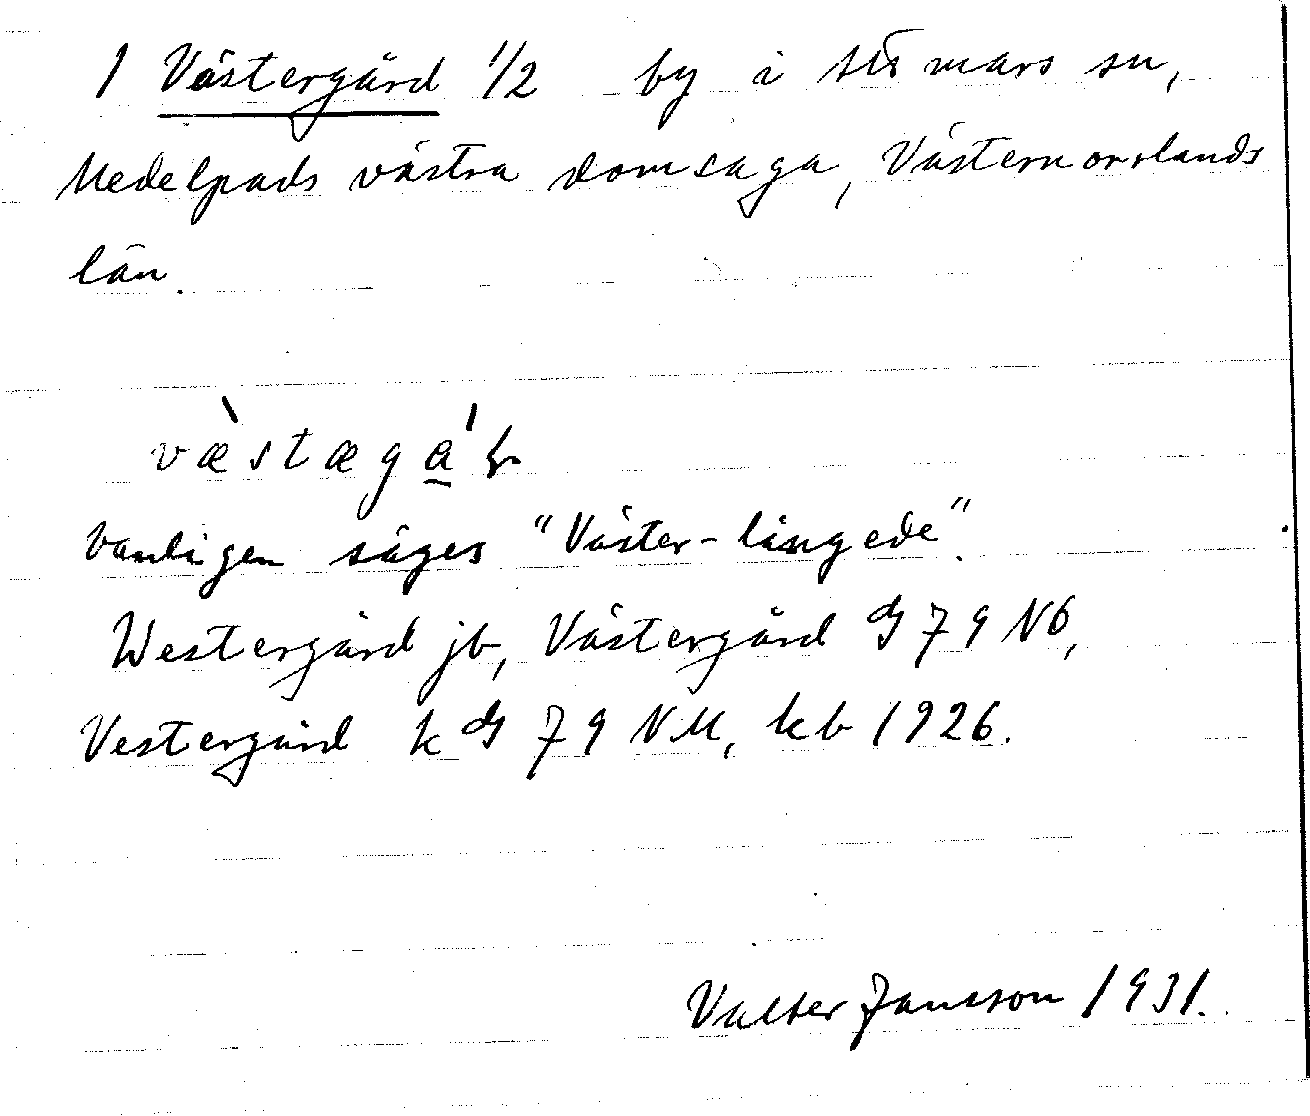 1 Västergård 1/2 by i Attmars sn,
Medelpads västra domsaga, Västernorrlands
län.
væ̀stægá̱ɽ
Vanligen säges "Väster-Långede".
Westergård jb, Västergård G 79 NO,
Vestergård k G 79 NM, kb 1926.
Valter Jansson 1931.